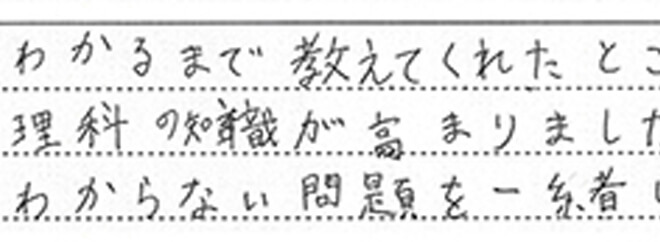 わかるまで教えてくれたとこ
理科の知識が高まりました
わからない問題を一緒